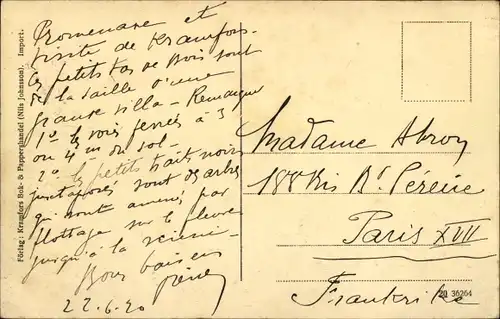 Promenade et
visite de Kramfors
les petits tas de Bois sont
de la taille d'une
grande villa - Remarquer
1° les voies ferrées à 3
ou 4 m du sol -
2° les petits traits noirs
juxtaposés sont des arbres
qui sont amenés par
flottage sur le fleuve
jusqu'à la scierie -
Bons baisers
Pierre
22.6.20
Madame Abron
188bis Bd Péreire
Paris XVII
Frankrike
Förlag: Kramfors Bok- & Pappershandel (Nils Johnsson). Import.
20 36264